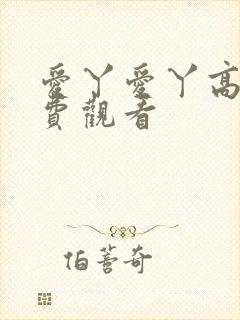 愛丫愛丫高
費觀看
伯薵奇